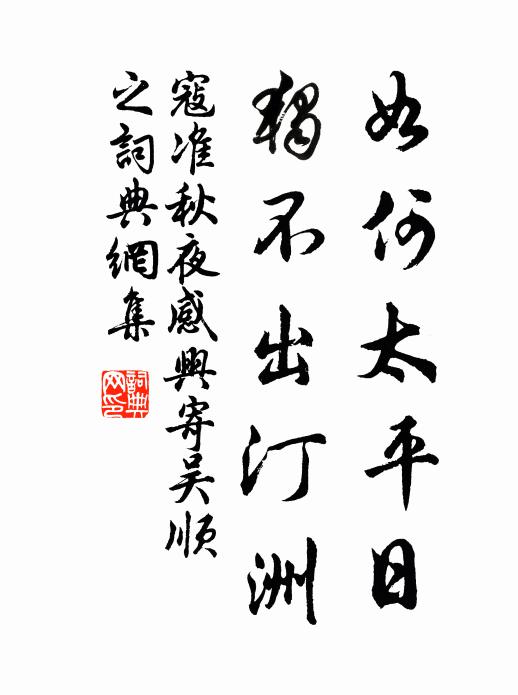 如何太平日
獨不出汀洲
寇准秋夜感興寄吴順
之詞典網集
詞典
网印